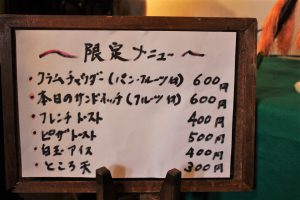 〜 限定メニュー 〜
・クラムチャウダー(パン・フルーツ付) 600円
・本日のサンドイッチ(フルーツ付) 600円
・フレンチトースト 400円
・ピザトースト 500円
・白玉アイス 400円
・ところ天 300円